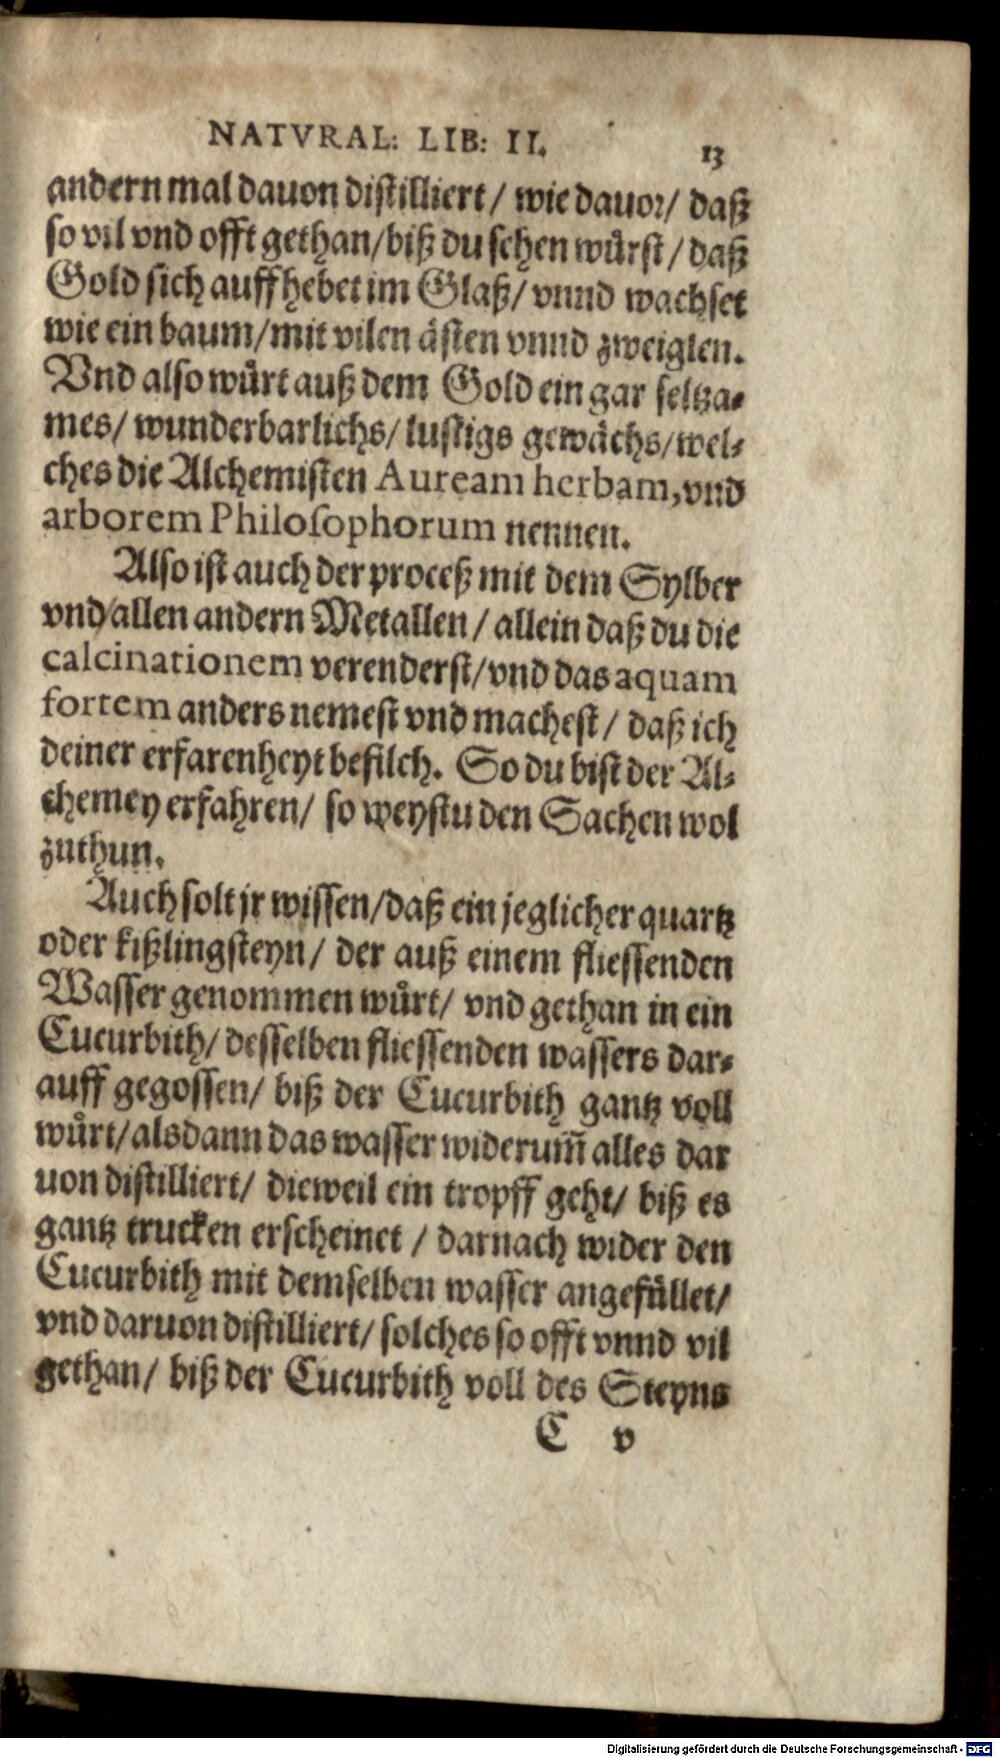 NATVRAL: LIB: II. 13
andern mal dauon distilliert/ wie dauor/ daß
so vil vnd offt gethan/biß du sehen wůrst/ daß
Gold sich auffhebet im Glaß/ vnnd wachset
wie ein baum/mit vilen ästen vnnd zweiglen.
Vnd also wůrt auß dem Gold ein gar seltza⸗
mes/ wunderbarlichs/ lustigs gewächs/wel⸗
ches die Alchemisten Auream herbam, vnd
arborem Philosophorum nennen.
Also ist auch der proceß mit dem Sylber
vnd/allen andern Metallen/ allein daß du die
calcinationem verenderst/vnd das aquam
fortem anders nemest vnd machest/ daß ich
deiner erfarenheyt befilch. So du bist der Al⸗
chemey erfahren/ so weystu den Sachen wol
zuthun.
Auch solt jr wissen/daß ein jeglicher quartz
oder kißlingsteyn/ der auß einem fliessenden
Wasser genommen wůrt/ vnd gethan in ein
Cucurbith/ desselben fliessenden wassers dar⸗
auff gegossen/ biß der Cucurbith gantz voll
wůrt/alsdann das wasser widerum̃ alles dar
uon distilliert/ dieweil ein tropff geht/ biß es
gantz trucken erscheinet / darnach wider den
Cucurbith mit demselben wasser angefüllet/
vnd daruon distilliert/ solches so offt vnnd vil
gethan/ biß der Cucurbith voll des Steyns
C v
Digitalisierung gefördert durch die Deutsche Forschungsgemeinschaft - DFG